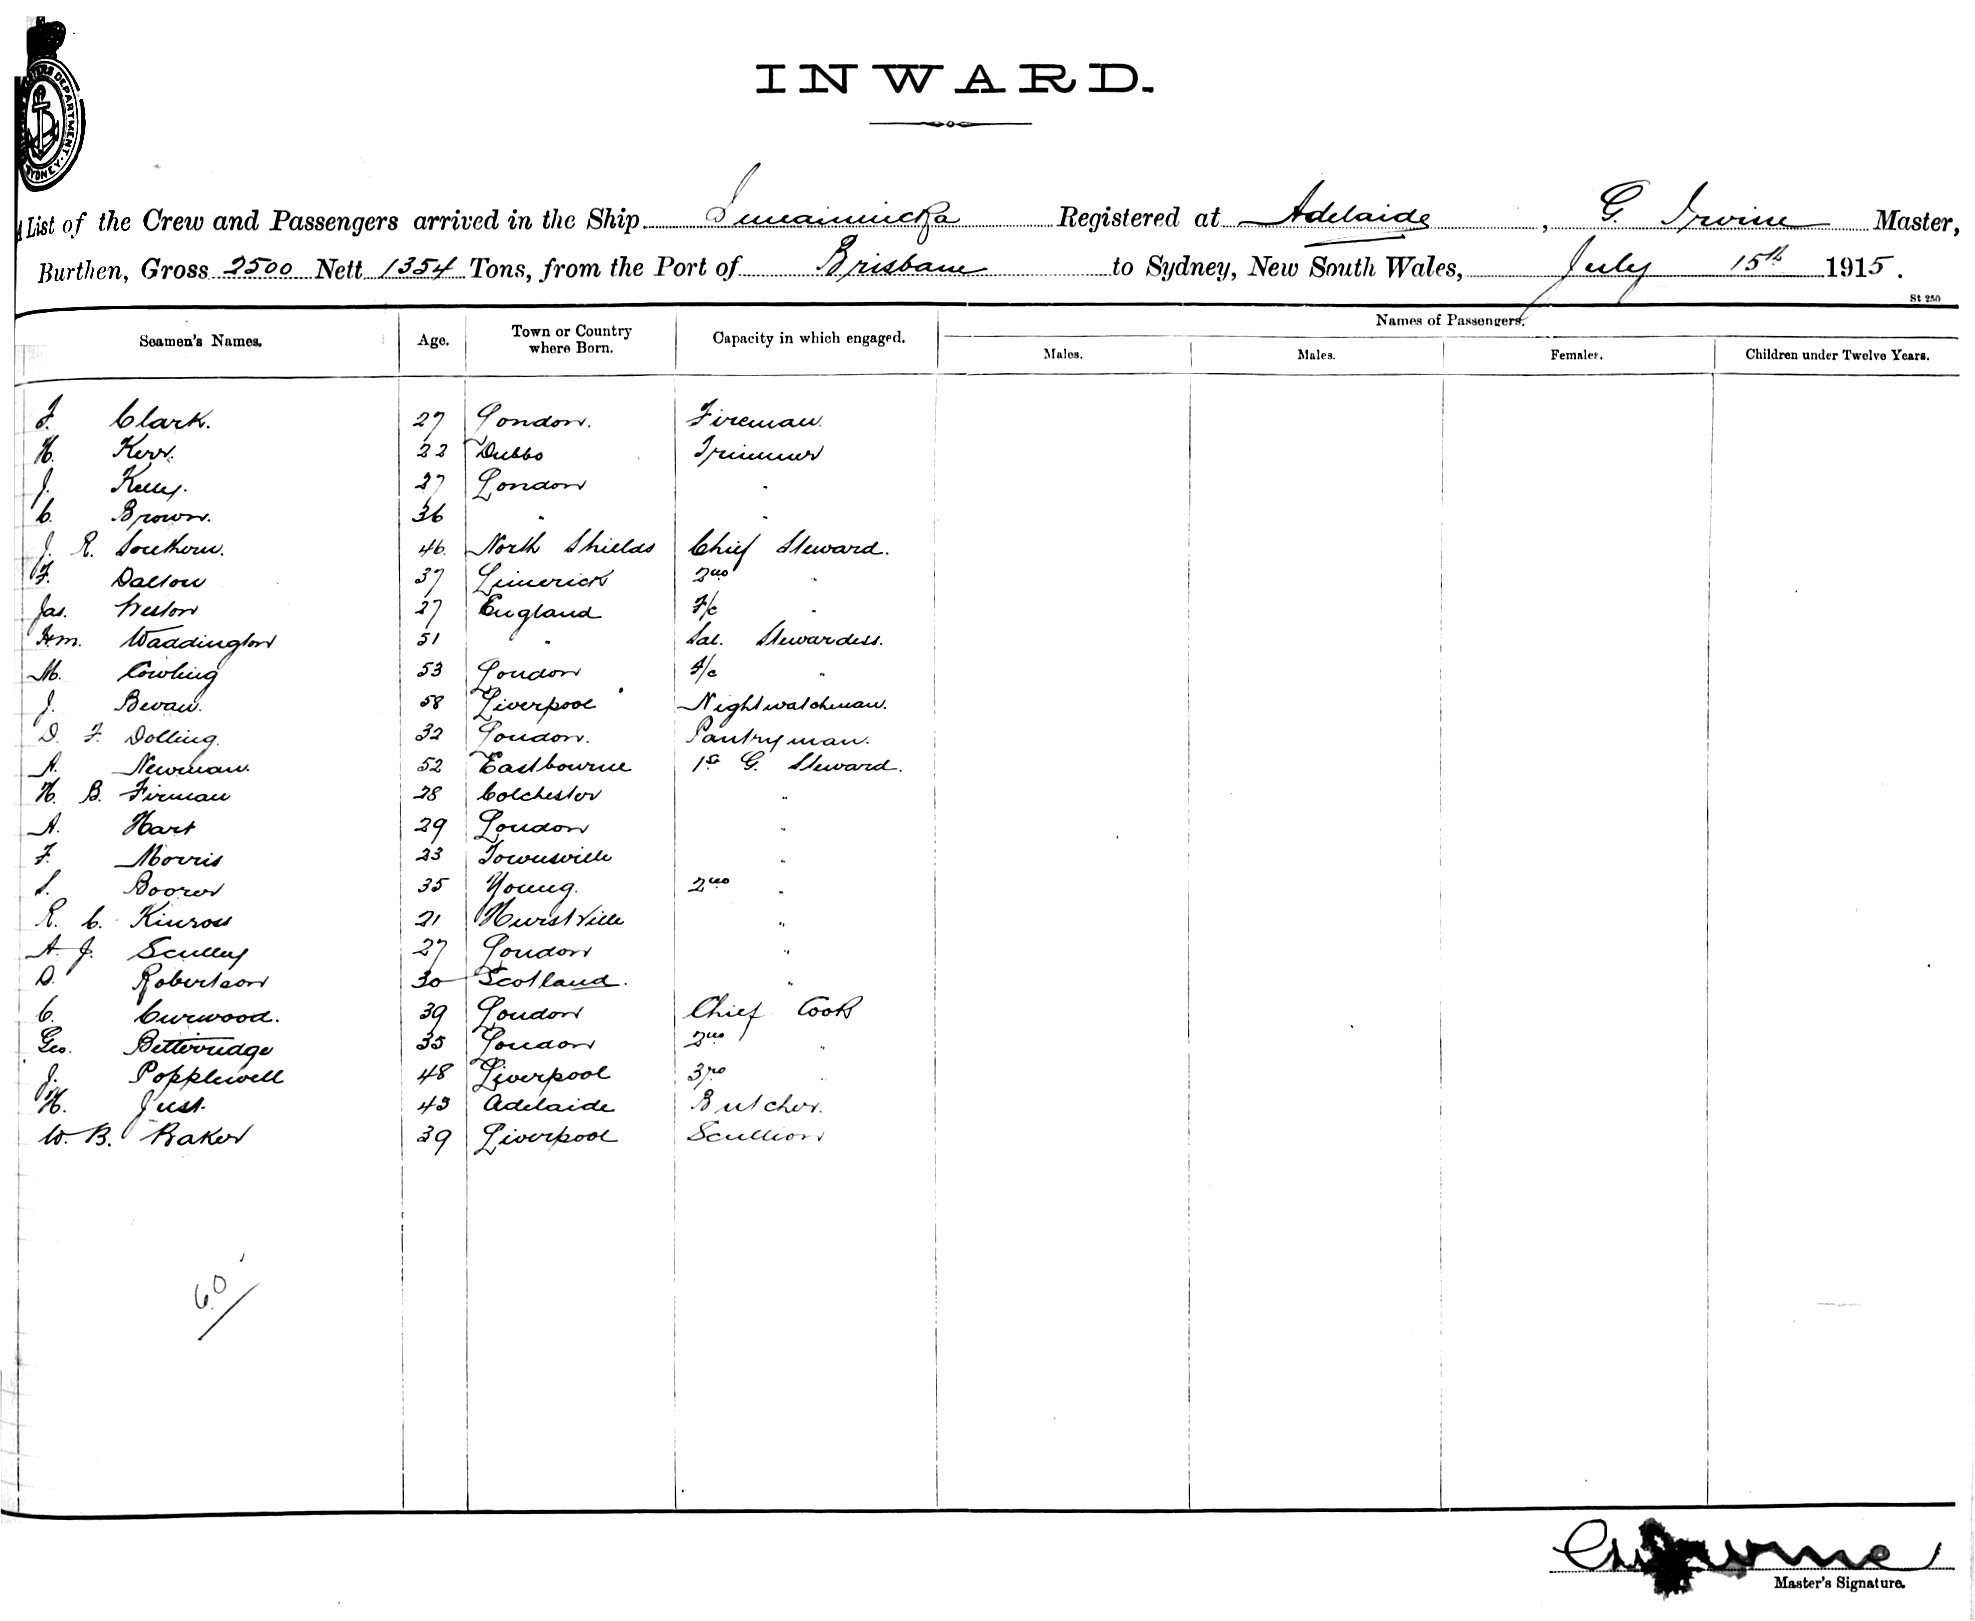 DEPARTMENT. SYDNEY
INWARD.
List of the Crew and Passengers arrived in the Ship Registered at Adelaide, G. Irvine Master,
Burthen, Gross 2500 Nett 1354 Tons, from the Port of Brisbane to Sydney, New South Wales, July 15th 1915.
St 250
Seamen's Names. Age. Town or Country where Born. Capacity in which engaged. Names of Passengers.
Males. Males. Females. Children under Twelve Years.
F. Clark. 27 London. Fireman.
H. Kerr. 22 Dubbo Trimmer
J. Kelly. 27 London "
C. Brown. 36 " "
J. R. Southern. 46. North Shields Chief Steward.
F. Dalton 37 Limerick 2nd "
Jas. Weston 27 England F/c "
Waddington 51 " Sal. Stewardess.
M. Cowling 53 London F/c "
J. Bevan. 58 Liverpool Nightwatchman.
D. F. Dolling. 32 London. Pantryman.
A. Newman. 52 Eastbourne 1st G. Steward.
H. B. Firman 28 Colchester "
A. Hart 29 London "
F. Morris 23 Townsville "
S. Boorer 35 Young. 2nd "
R. C. Kinross 21 Hurstville "
A. J. Sculley 27 London "
D. Robertson 30 Scotland. "
C. Curwood. 39 London Chief Cook
Geo. Betteridge 35 London 2nd "
J. Popplewell 48 Liverpool 3rd "
H. Just. 43 Adelaide Butcher.
W. B. Baker 39 Liverpool Scullion
60
G Irvine
Master's Signature.